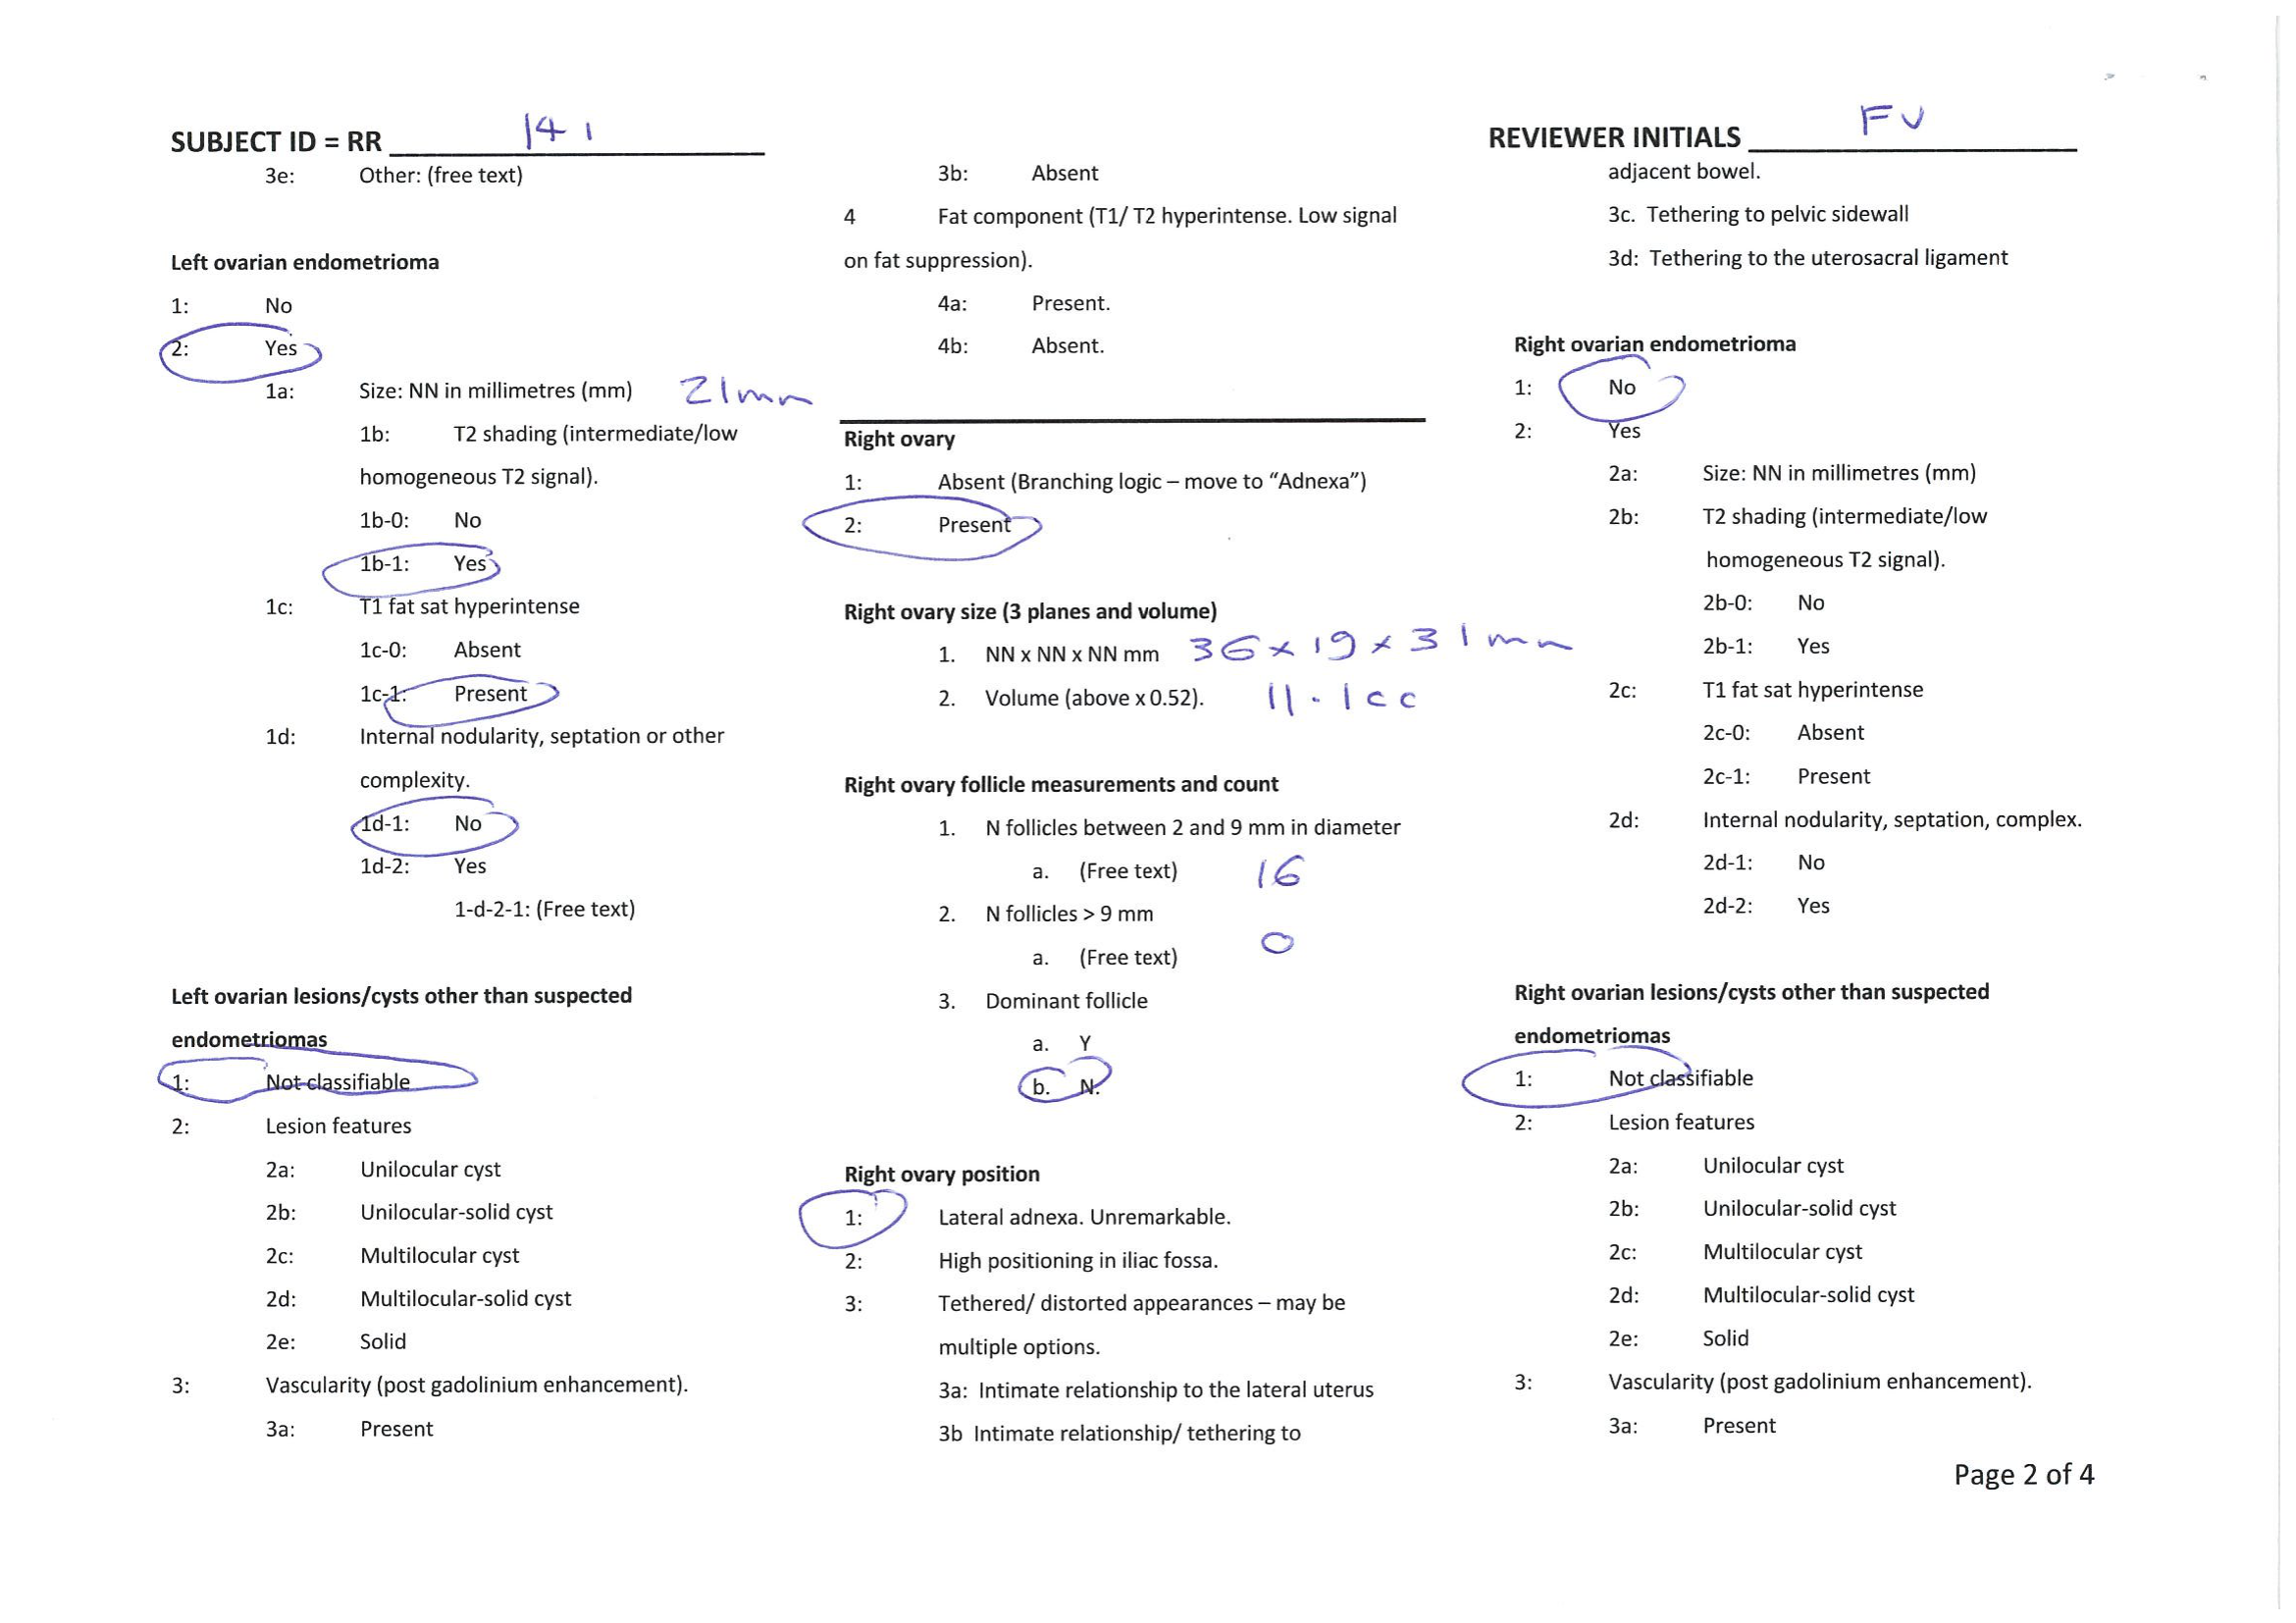 SUBJECT ID = RR 141
3e: Other: (free text)
Left ovarian endometrioma
1: No
2: Yes
1a: Size: NN in millimetres (mm) 21mm
1b: T2 shading (intermediate/low
homogeneous T2 signal).
1b-0: No
1b-1: Yes
1c: T1 fat sat hyperintense
1c-0: Absent
1c-1: Present
1d: Internal nodularity, septation or other
complexity.
1d-1: No
1d-2: Yes
1-d-2-1: (Free text)
Left ovarian lesions/cysts other than suspected
endometriomas
1: Not classifiable
2: Lesion features
2a: Unilocular cyst
2b: Unilocular-solid cyst
2c: Multilocular cyst
2d: Multilocular-solid cyst
2e: Solid
3: Vascularity (post gadolinium enhancement).
3a: Present
3b: Absent
4 Fat component (T1/ T2 hyperintense. Low signal
on fat suppression).
4a: Present.
4b: Absent.
Right ovary
1: Absent (Branching logic – move to “Adnexa”)
2: Present
Right ovary size (3 planes and volume)
1. NN x NN x NN mm 36 x 19 x 31mm
2. Volume (above x 0.52). 11.1cc
Right ovary follicle measurements and count
1. N follicles between 2 and 9 mm in diameter
a. (Free text) 16
2. N follicles > 9 mm
a. (Free text) 0
3. Dominant follicle
a. Y
b. N.
Right ovary position
1: Lateral adnexa. Unremarkable.
2: High positioning in iliac fossa.
3: Tethered/ distorted appearances – may be
multiple options.
3a: Intimate relationship to the lateral uterus
3b Intimate relationship/ tethering to
REVIEWER INITIALS FV
adjacent bowel.
3c. Tethering to pelvic sidewall
3d: Tethering to the uterosacral ligament
Right ovarian endometrioma
1: No
2: Yes
2a: Size: NN in millimetres (mm)
2b: T2 shading (intermediate/low
homogeneous T2 signal).
2b-0: No
2b-1: Yes
2c: T1 fat sat hyperintense
2c-0: Absent
2c-1: Present
2d: Internal nodularity, septation, complex.
2d-1: No
2d-2: Yes
Right ovarian lesions/cysts other than suspected
endometriomas
1: Not classifiable
2: Lesion features
2a: Unilocular cyst
2b: Unilocular-solid cyst
2c: Multilocular cyst
2d: Multilocular-solid cyst
2e: Solid
3: Vascularity (post gadolinium enhancement).
3a: Present
Page 2 of 4